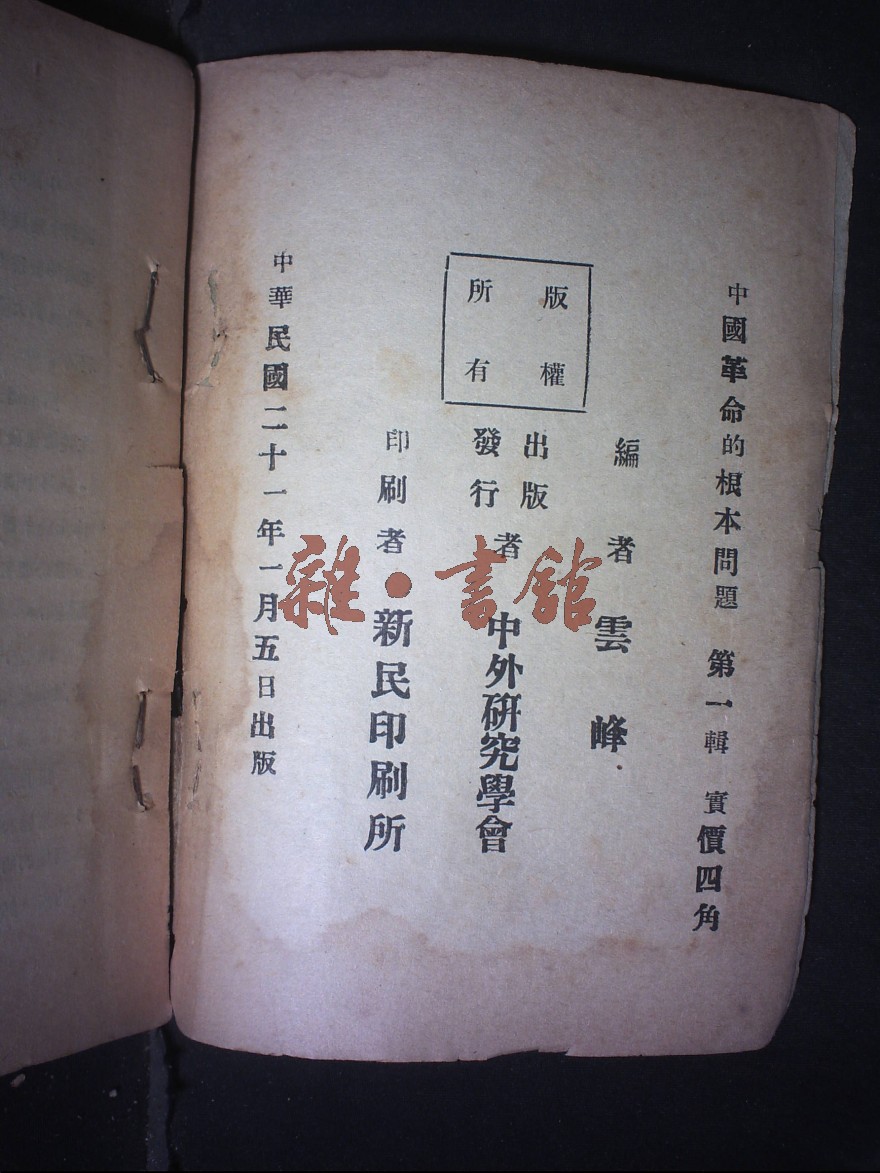 中國革命的根本問題 第一輯 實價四角
編者 雲峰
版權
所有
出版
發行者 中外研究學會
印刷者 新民印刷所
中華民國二十一年一月五日出版
雜·書館